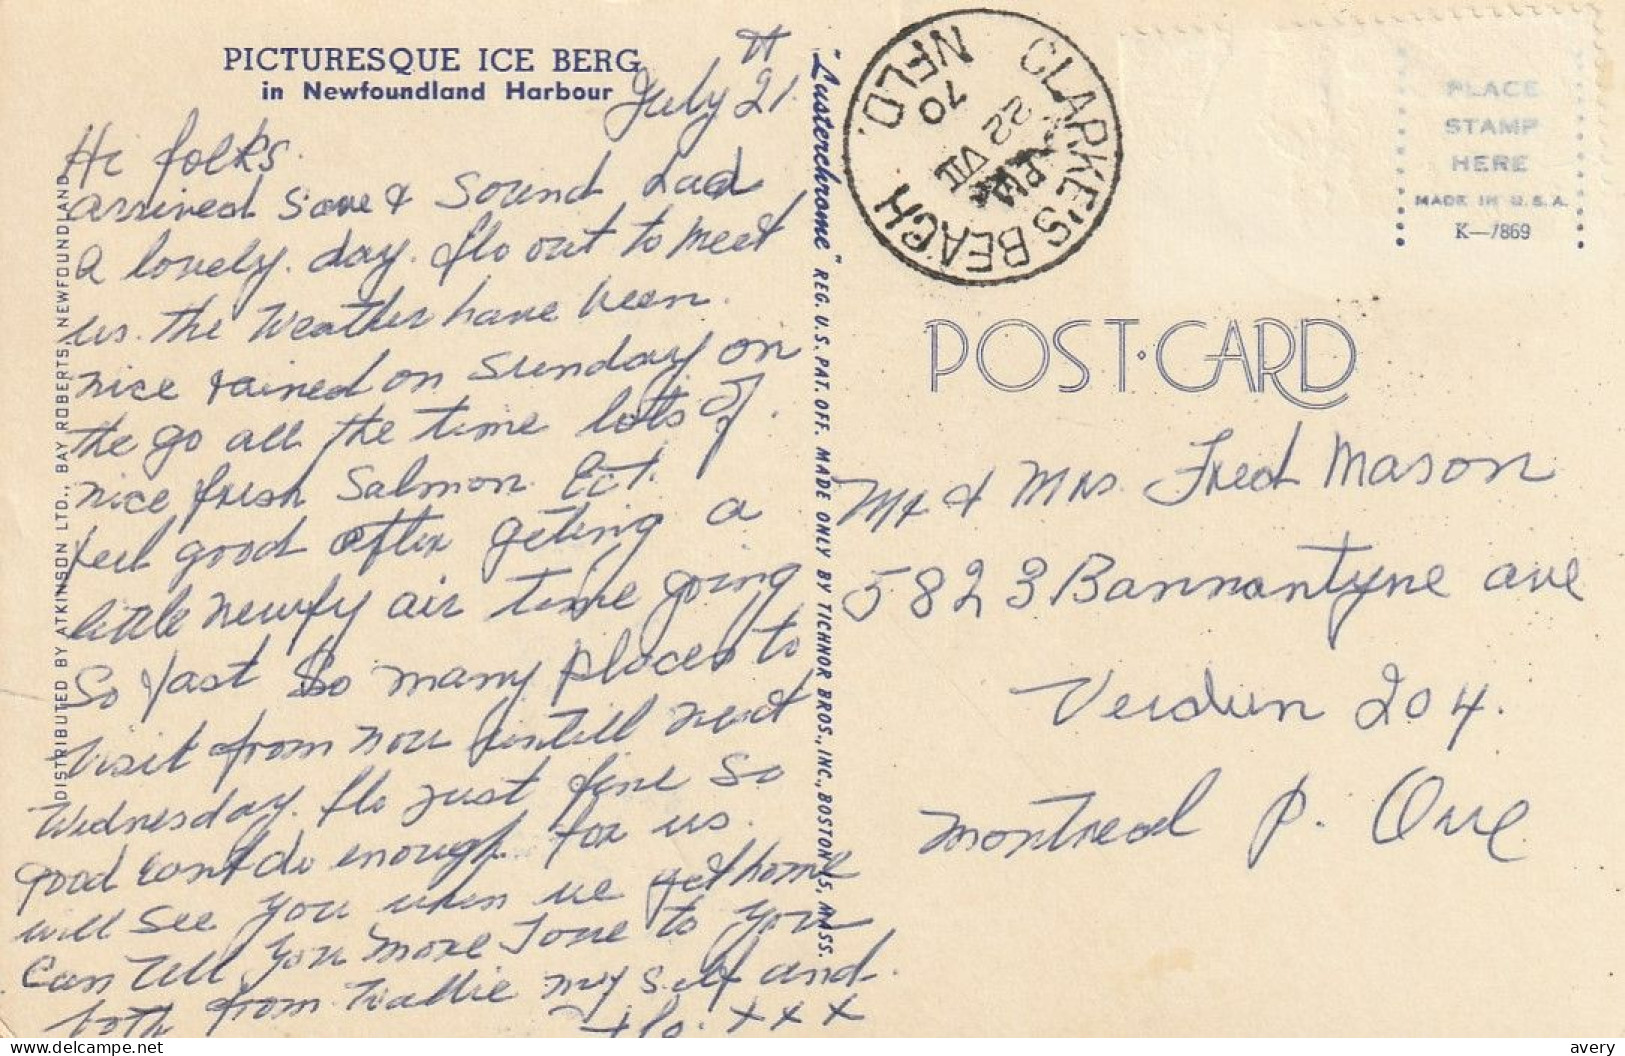 PICTURESQUE ICE BERG
in Newfoundland Harbour
July 21
Hi folks.
arrived save & Sound Lad
a lovely. day. flo out to meet
us. the Weather have been.
nice rained on Sunday on
the go all the time lots of.
nice fresh Salmon Ect.
feel good after geting a
little newfy air time going
So fast So many places to
visit from now untill next
Wednesday. flo just fine So
good cant do enough for us.
will see you when we get home
Can Tell you more Love to you
both from Wallie my self and
flo. x x x
DISTRIBUTED BY ATKINSON LTD., BAY ROBERTS, NEWFOUNDLAND
"Lusterchrome" REG. U. S. PAT. OFF. MADE ONLY BY TICHNOR BROS., INC., BOSTON 15, MASS.
CLARKE'S BEACH
NFLD.
PM
22 VII
70
PLACE
STAMP
HERE
MADE IN U.S.A.
K-7869
POST·CARD
Mr & Mrs. Fred Mason
5823 Bannantyne ave
Verdun 204.
Montreal P. Que
delcampe.net
avery